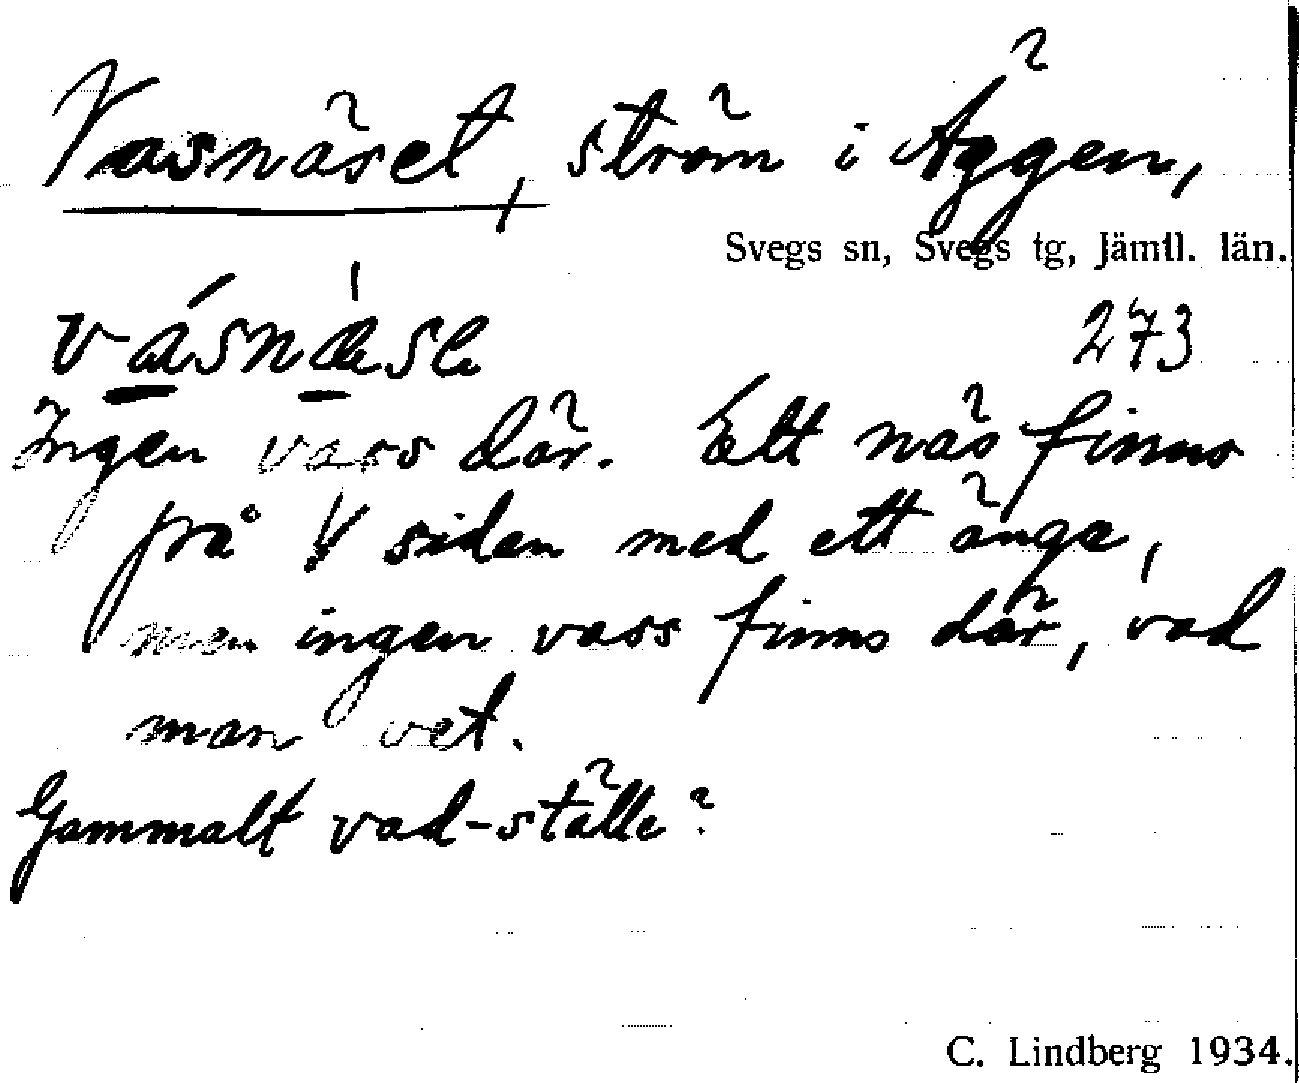 Vasnäset, ström i Äggen,
Svegs sn, Svegs tg, Jämtl. län.
vásnä̀se 273
Ingen vass där. Ett näs finns
på V sidan med ett änge,
men ingen vass finns där, vad
man vet.
Gammalt vad-ställe?
C. Lindberg 1934.